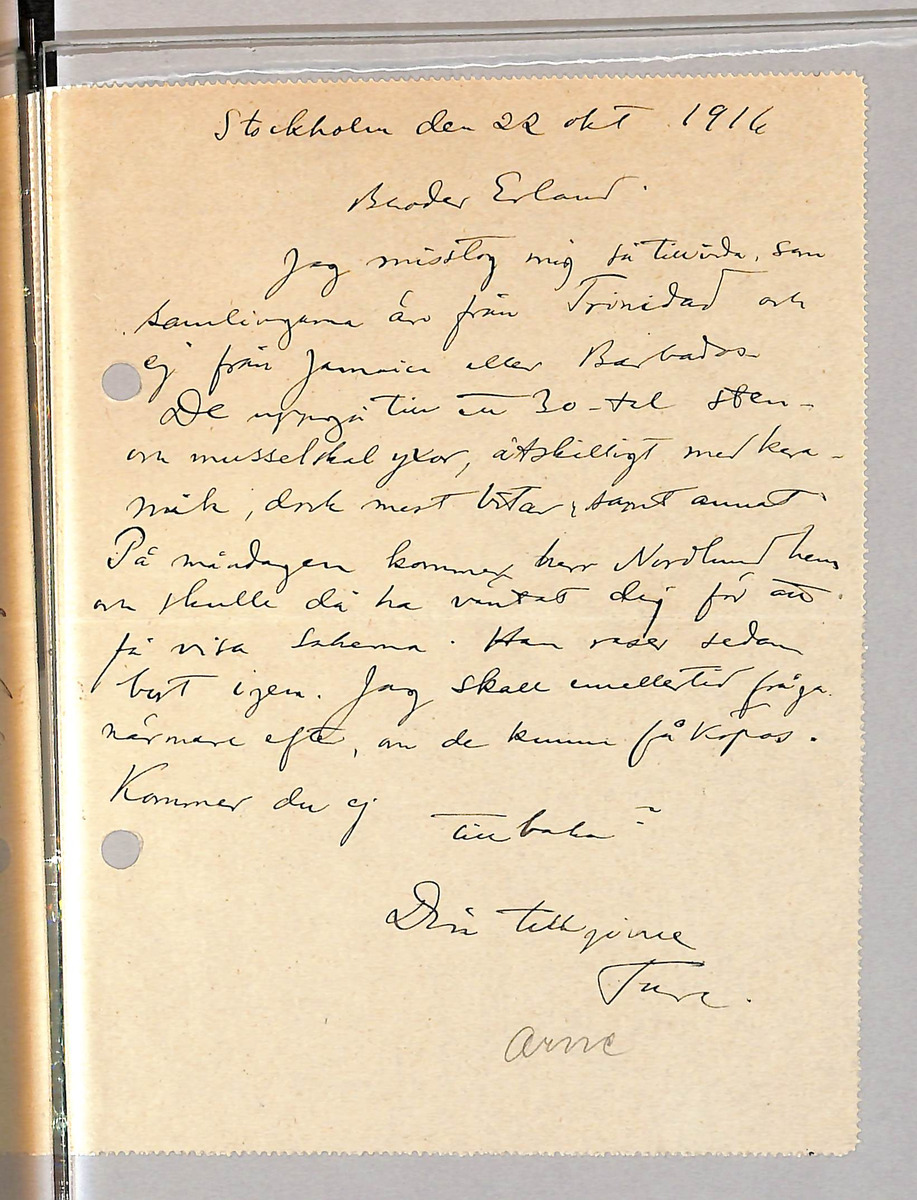 Stockholm den 22 okt 1916
Broder Erland.
Jag misstog mig så tillvida, som
samlingarna äro från Trinidad och
ej från Jamaica eller Barbados.
De uppgå till ett 30-tal sten-
och musselskalyxor, åtskilligt med kera-
mik, dock mest bitar, samt annat.
På måndagen kommer herr Nordlund hem
och skulle då ha väntat dig för att
få visa sakerna. Han reser sedan
bort igen. Jag skall emellertid fråga
närmare efter, om de kunna få köpas.
Kommer du ej
tillbaka?
Din tillgivne
Ture.
Arne